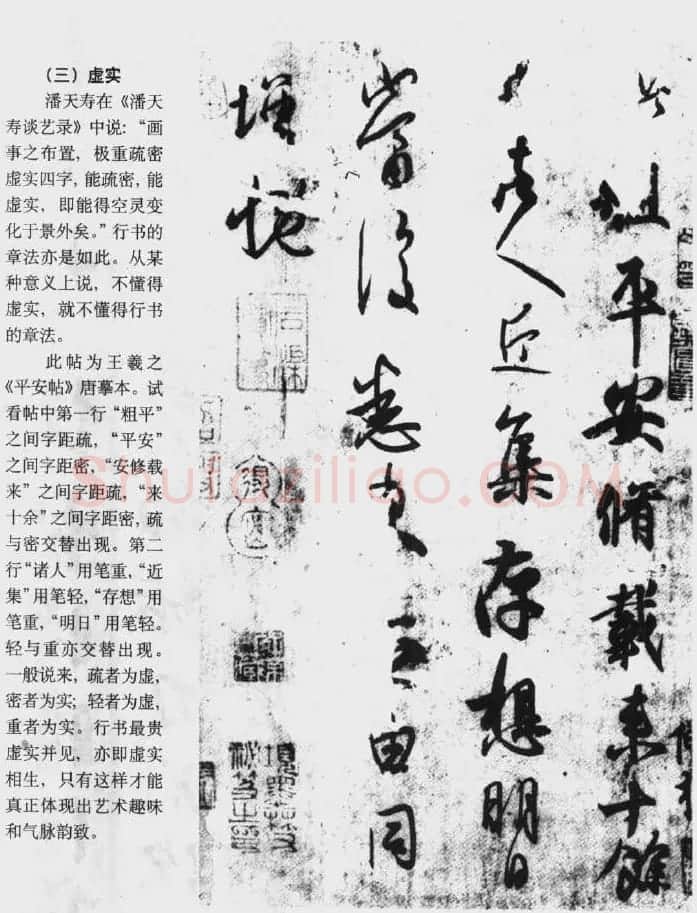 （三）虚实
潘天寿在《潘天
寿谈艺录》中说：“画
事之布置，极重疏密
虚实四字，能疏密，能
虚实，即能得空灵变
化于景外矣。”行书的
章法亦是如此。从某
种意义上说，不懂得
虚实，就不懂得行书
的章法。
此帖为王羲之
《平安帖》唐摹本。试
看帖中第一行“粗平”
之间字距疏，“平安”
之间字距密，“安修载
来”之间字距疏，“来
十余”之间字距密，疏
与密交替出现。第二
行“诸人”用笔重，“近
集”用笔轻，“存想”用
笔重，“明日”用笔轻。
轻与重亦交替出现。
一般说来，疏者为虚，
密者为实；轻者为虚，
重者为实。行书最贵
虚实并见，亦即虚实
相生，只有这样才能
真正体现出艺术趣味
和气脉韵致。
此粗平安脩載来十餘
日諸人近集存想明日
當復悉来無由同
增慨
Shufaziliao.COM